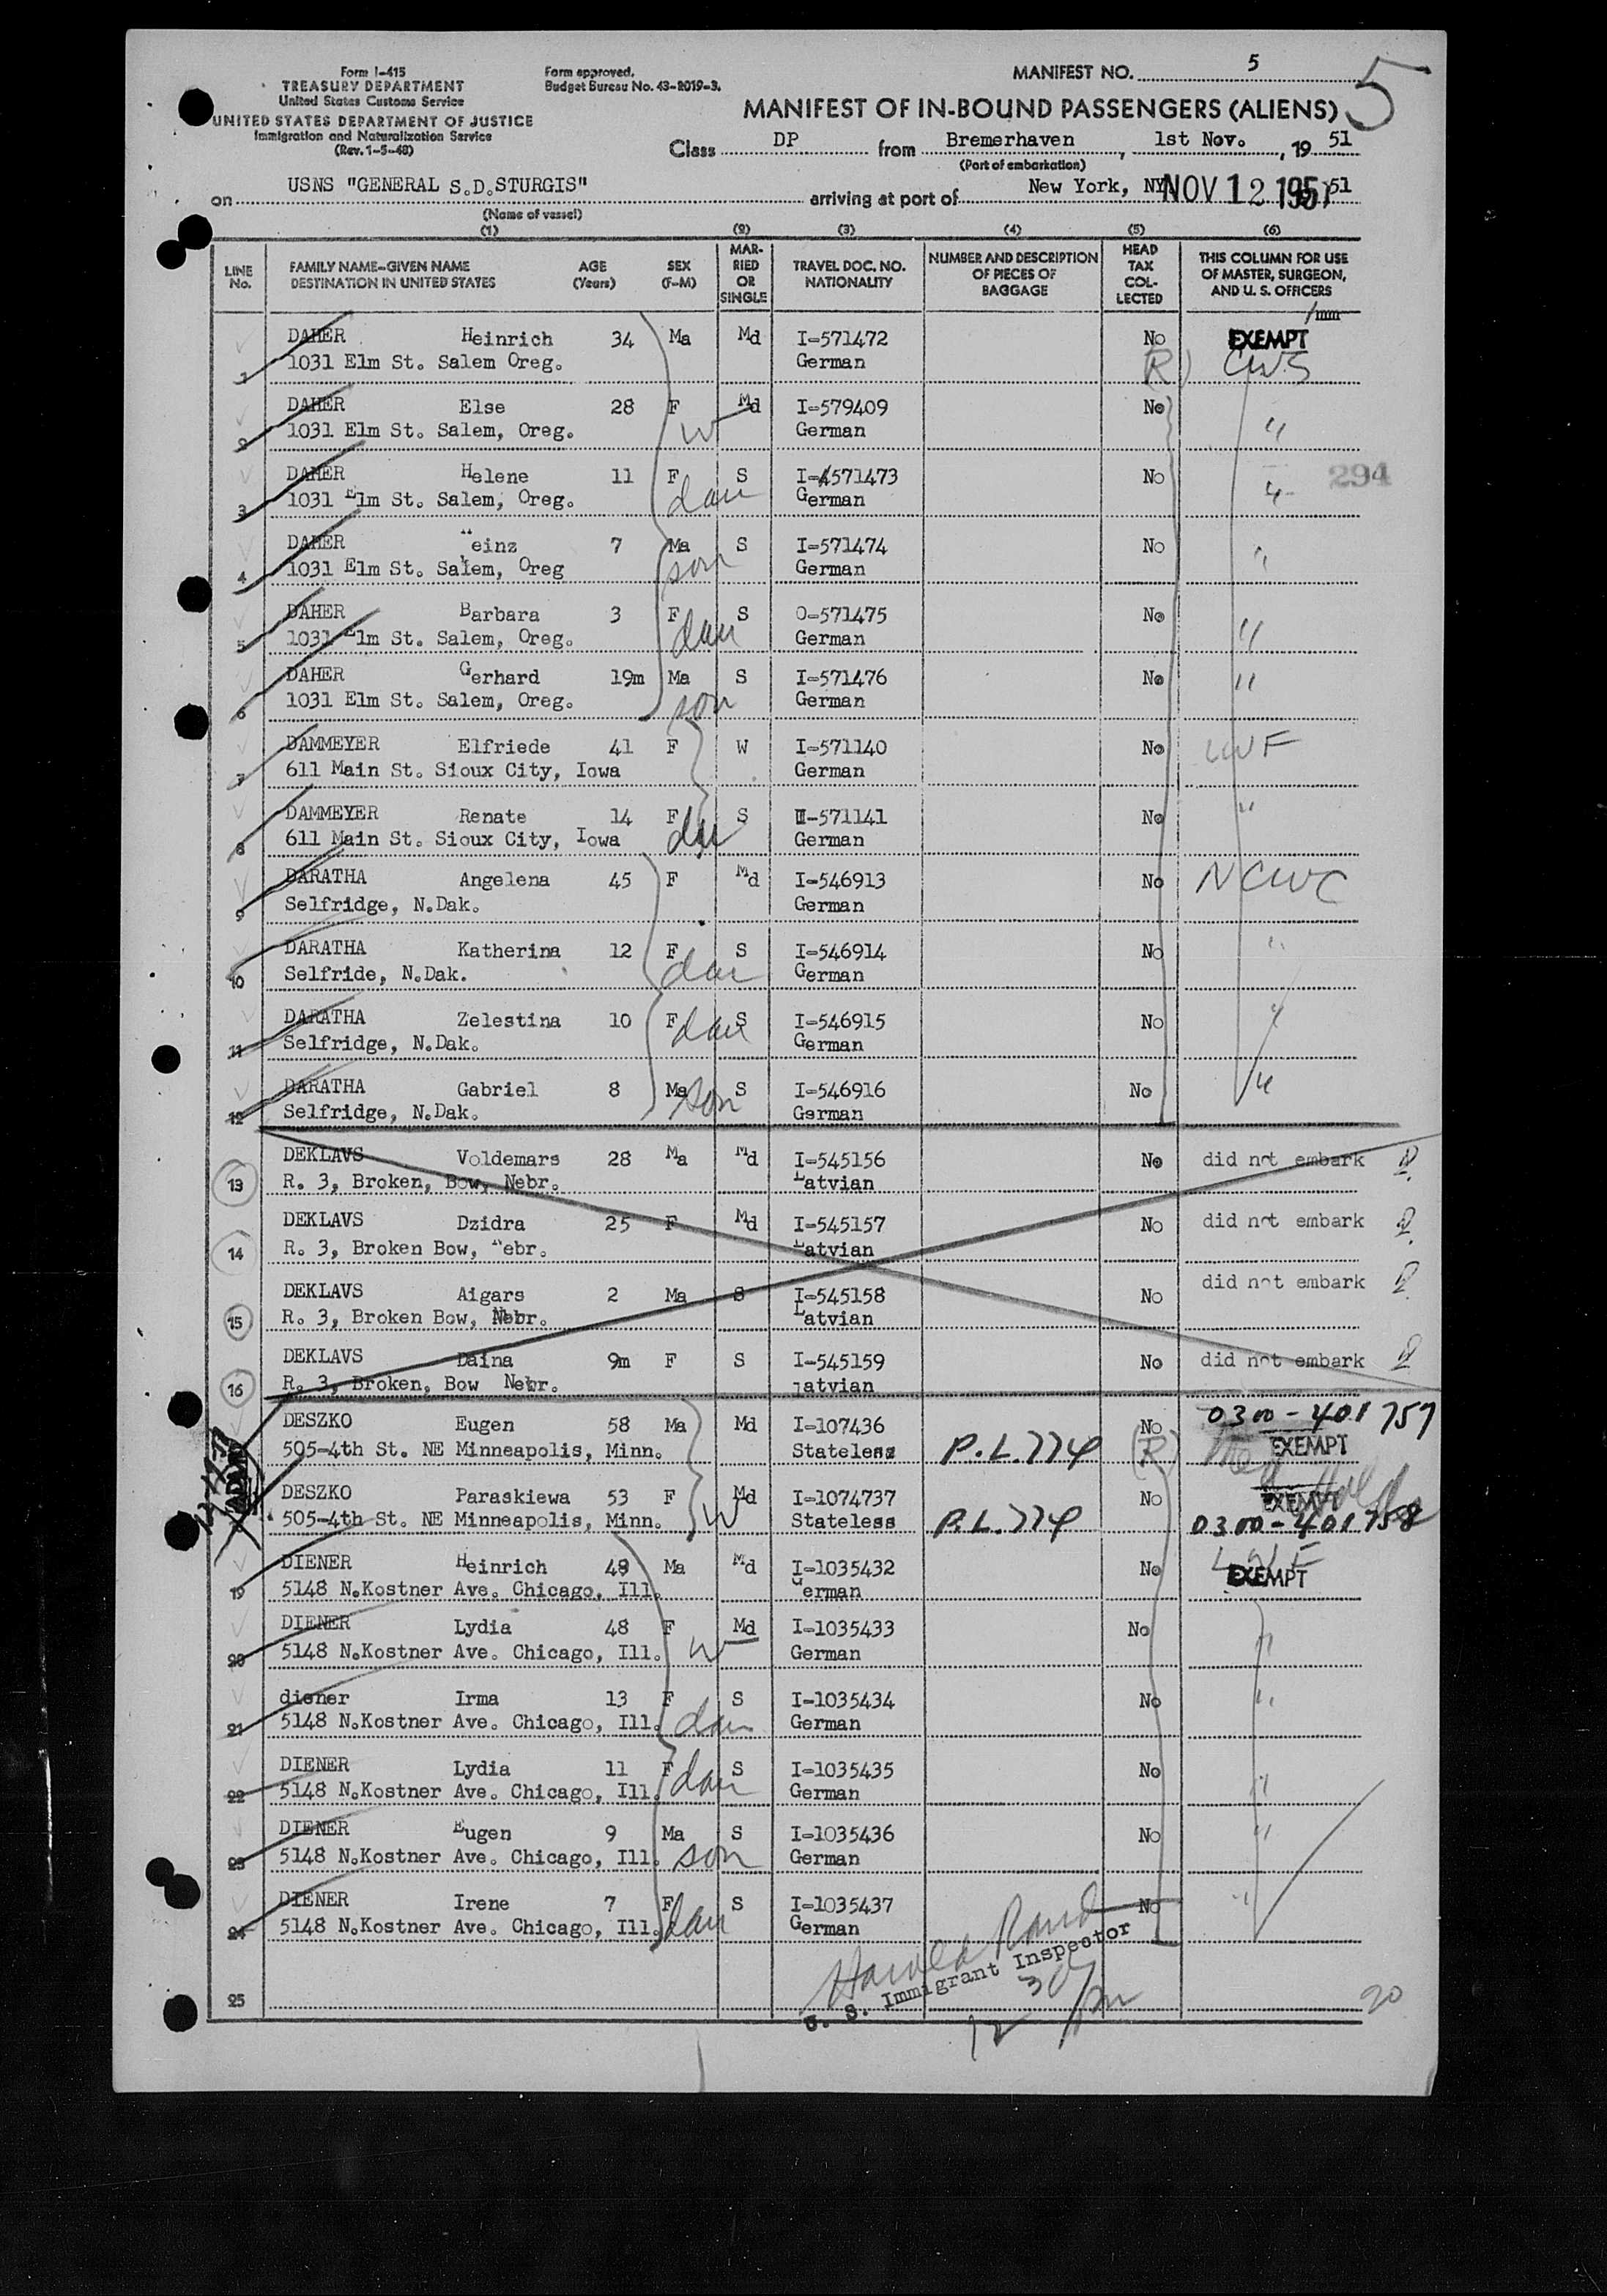 Form I-415
TREASURY DEPARTMENT
United States Customs Service
UNITED STATES DEPARTMENT OF JUSTICE
Immigration and Naturalization Service
(Rev. 1-5-48)
Form approved.
Budget Bureau No. 43-R019-3.
MANIFEST NO. 5
5
MANIFEST OF IN-BOUND PASSENGERS (ALIENS)
Class DP from Bremerhaven, 1st Nov., 19 51
(Port of embarkation)
on USNS "GENERAL S.D.STURGIS" arriving at port of New York, NY NOV 12 1951 51
(Name of vessel)
(1) (2) (3) (4) (5) (6)
LINE No.
FAMILY NAME-GIVEN NAME
DESTINATION IN UNITED STATES
AGE (Years)
SEX (F-M)
MARRIED OR SINGLE
TRAVEL DOC. NO. NATIONALITY
NUMBER AND DESCRIPTION OF PIECES OF BAGGAGE
HEAD TAX COLLECTED
THIS COLUMN FOR USE OF MASTER, SURGEON, AND U. S. OFFICERS
1 DAHER Heinrich 34 Ma Md I-571472 No EXEMPT
1031 Elm St. Salem Oreg. German (R) CWS
2 DAHER Else 28 F Md I-579409 No
1031 Elm St. Salem, Oreg. W German "
3 DAHER Helene 11 F S I-571473 No 294
1031 Elm St. Salem, Oreg. dau German "
4 DAHER Heinz 7 Ma S I-571474 No
1031 Elm St. Salem, Oreg son German "
5 DAHER Barbara 3 F S O-571475 No
1031 Elm St. Salem, Oreg. dau German "
6 DAHER Gerhard 19m Ma S I-571476 No "
1031 Elm St. Salem, Oreg. son German
7 DAMMEYER Elfriede 41 F W I-571140 No LWF
611 Main St. Sioux City, Iowa German
8 DAMMEYER Renate 14 F S I-571141 No "
611 Main St. Sioux City, Iowa dau German
9 DARATHA Angelena 45 F Md I-546913 No NCWC
Selfridge, N.Dak. German
10 DARATHA Katherina 12 F S I-546914 No "
Selfride, N.Dak. dau German
11 DARATHA Zelestina 10 F dau S I-546915 No "
Selfridge, N.Dak. German
12 DARATHA Gabriel 8 Ma son S I-546916 No "
Selfridge, N.Dak. German
13 DEKLAVS Voldemars 28 Ma Md I-545156 No did not embark
R. 3, Broken, Bow, Nebr. Latvian
14 DEKLAVS Dzidra 25 F Md I-545157 No did not embark
R. 3, Broken Bow, Nebr. Latvian
15 DEKLAVS Aigars 2 Ma S I-545158 No did not embark
R. 3, Broken Bow, Nebr. Latvian
16 DEKLAVS Daina 9m F S I-545159 No did not embark
R. 3, Broken, Bow Nebr. latvian
DESZKO Eugen 58 Ma Md I-107436 No 0300-401757
505-4th St. NE Minneapolis, Minn. Stateless P.L.774 (R) EXEMPT
DESZKO Paraskiewa 53 F Md I-1074737 No EXEMPT
505-4th St. NE Minneapolis, Minn. W Stateless P.L.774 0300-401758
19 DIENER Heinrich 49 Ma Md I-1035432 No LWF
5148 N.Kostner Ave. Chicago, Ill. German EXEMPT
20 DIENER Lydia 48 F Md I-1035433 No
5148 N.Kostner Ave. Chicago, Ill. W German "
21 diener Irma 13 F S I-1035434 No "
5148 N.Kostner Ave. Chicago, Ill. dau German
22 DIENER Lydia 11 F dau S I-1035435 No
5148 N.Kostner Ave. Chicago, Ill. German "
23 DIENER Eugen 9 Ma S I-1035436 No "
5148 N.Kostner Ave. Chicago, Ill. son German
24 DIENER Irene 7 F S I-1035437 No "
5148 N.Kostner Ave. Chicago, Ill. dau German
Harold Rand
U. S. Immigrant Inspector
12 30 pm
25
20